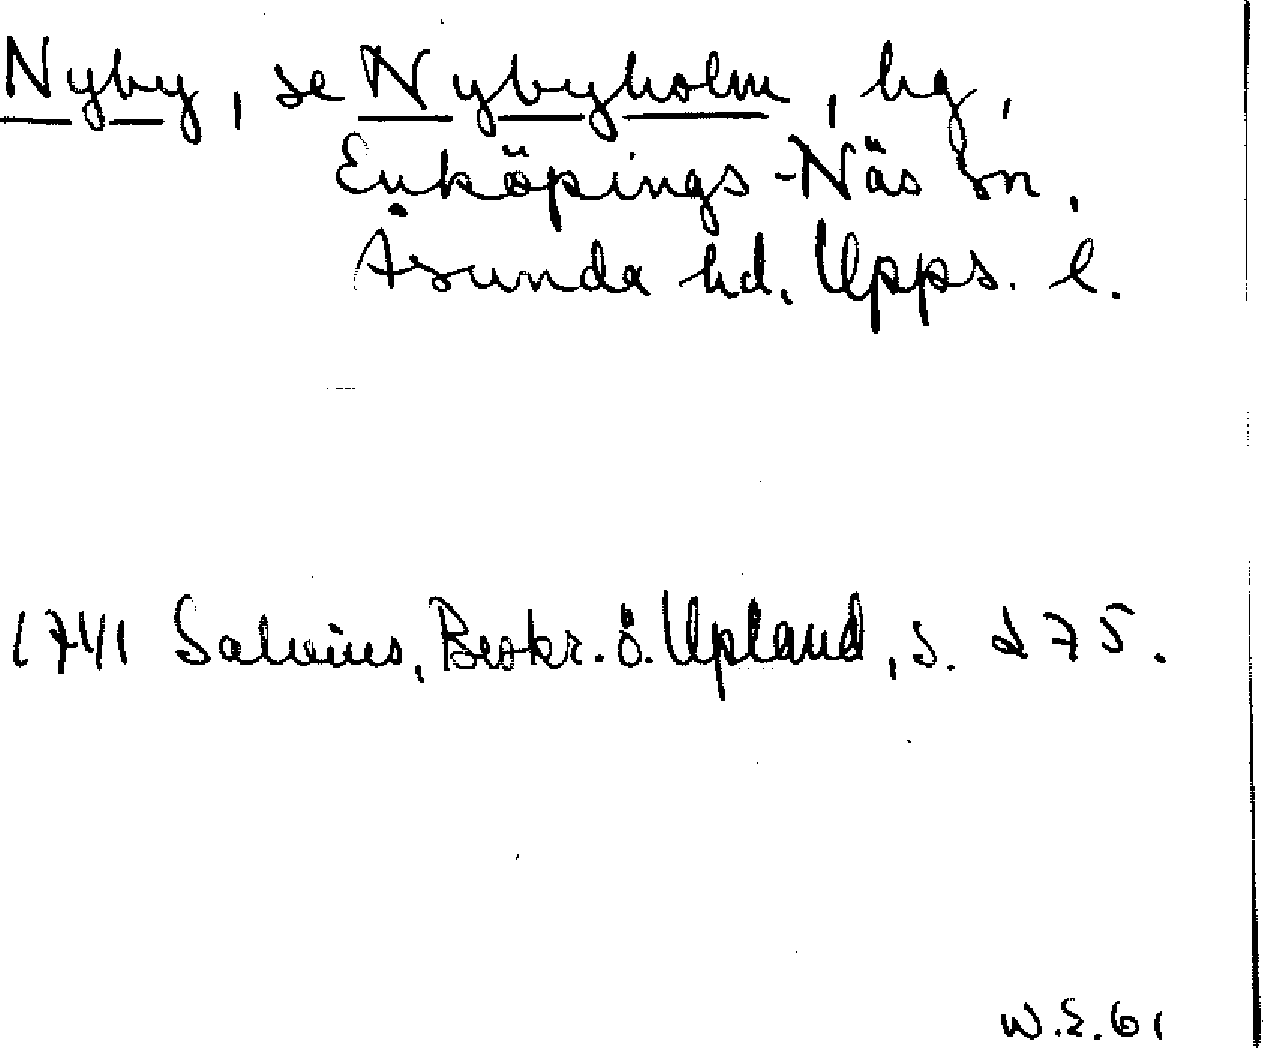 Nyby, se Nybyholm, hg,
Enköpings-Näs sn,
Åsunda hd, Upps. l.
1741 Salvius, Beskr. ö. Upland, s. 275.
W.S.61